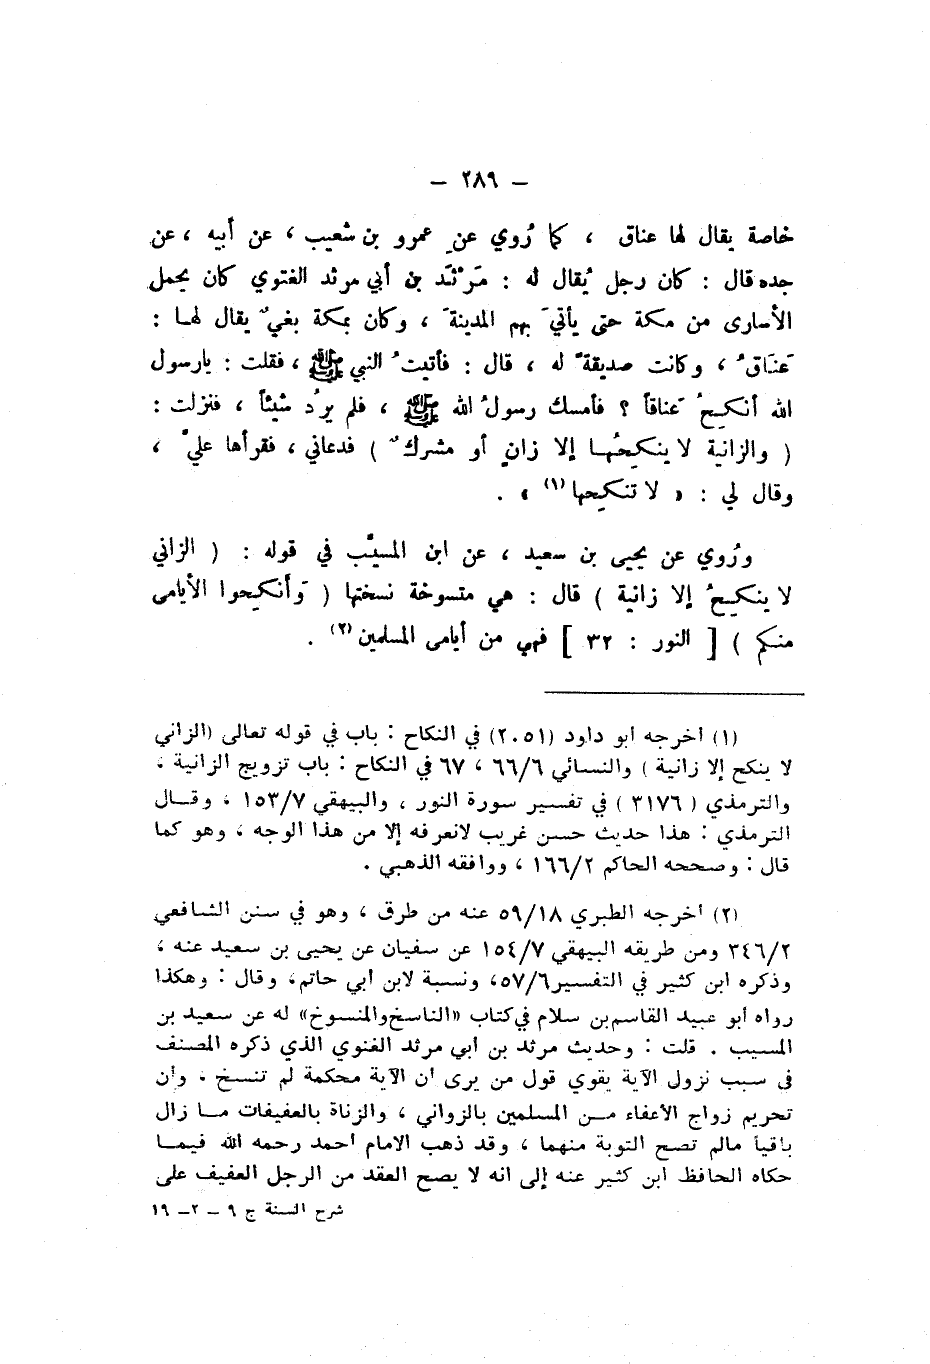 – ٢٨٩ –
خاصة يقال لها عناق ، كما رُوي عن عمرو بن شعيب ، عن أبيه ، عن
جده قال : كان رجل يُقال له : مَرْثَد بن أبي مرثد الغنوي كان يحمل
الأسارى من مكة حتى يأتيَ بهم المدينةَ ، وكان بمكة بغيٌ يقال لهـا :
عَنَاقُ ، وكانت صديقةً له ، قال : فأتيتُ النبي ﷺ ، فقلت : يارسول
الله أنكِحُ عَناقاً ؟ فأمسك رسولُ الله ﷺ ، فلم يردُ شيئاً ، فنزلت :
( والزانية لا ينكِحُهـا إلا زانٍ أو مشركٌ ) فدعاني ، فقرأها عليَّ ،
وقال لي : « لا تنكِحها (١) » .
ورُوي عن يحيى بن سعيد ، عن ابن المسيَّب في قوله : ( الزاني
لا ينكِحُ إلا زانية ) قال : هي منسوخة نسختها ( وَأَنكِحوا الأيامى
منكم ) [ النور : ٣٢ ] فهي من أيامى المسلمين (٢) .
(١) أخرجه أبو داود (٢٠٥١) في النكاح : باب في قوله تعالى (الزاني
لا ينكح إلا زانية ) والنسائي ٦٦/٦ ، ٦٧ في النكاح : باب تزويج الزانية ،
والترمذي ( ٣١٧٦ ) في تفسير سورة النور ، والبيهقي ١٥٣/٧ ، وقـال
الترمذي : هذا حديث حسن غريب لانعرفه إلا من هذا الوجه ، وهو كما
قال : وصححه الحاكم ١٦٦/٢ ، ووافقه الذهبي .
(٢) أخرجه الطبري ٥٩/١٨ عنه من طرق ، وهو في سنن الشافعي
٣٤٦/٢ ومن طريقه البيهقي ١٥٤/٧ عن سفيان عن يحيى بن سعيد عنه ،
وذكره ابن كثير في التفسير٥٧/٦، ونسبة لابن أبي حاتم، وقال : وهكذا
رواه أبو عبيد القاسم بن سلام في كتاب «الناسخ والمنسوخ» له عن سعيد بن
المسيب . قلت : وحديث مرثد بن أبي مرثد الغنوي الذي ذكره المصنف
في سبب نزول الآية يقوي قول من يرى أن الآية محكمة لم تنسخ ، وأن
تحريم زواج الأعفاء مـن المسلمين بالزواني ، والزناة بالعفيفات مـا زال
باقياً مالم تصح التوبة منهما ، وقد ذهب الامام أحمد رحمه الله فيمـا
حكاه الحافظ ابن كثير عنه إلى أنه لا يصح العقد من الرجل العفيف على
شرح السنة ج ٩ – ٢– ١٩